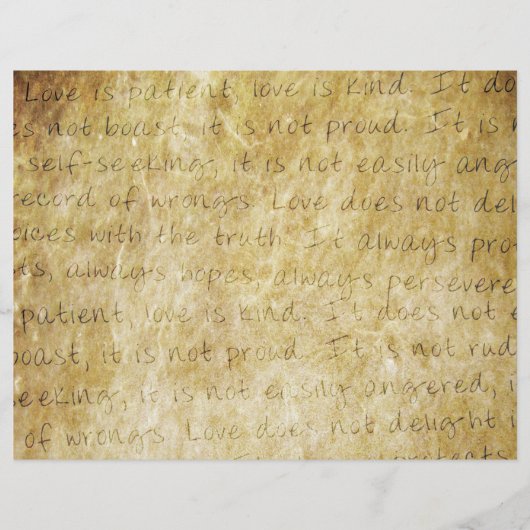 Love is patient, love is kind. It do
es not boast, it is not proud. It is
self-seeking, it is not easily ang
record of wrongs. Love does not del
oices with the truth. It always pro
ts, always hopes, always persevere
patient, love is kind. It does not e
boast, it is not proud. It is not rud
eeking, it is not easily angered, i
of wrongs. Love does not delight i
protects